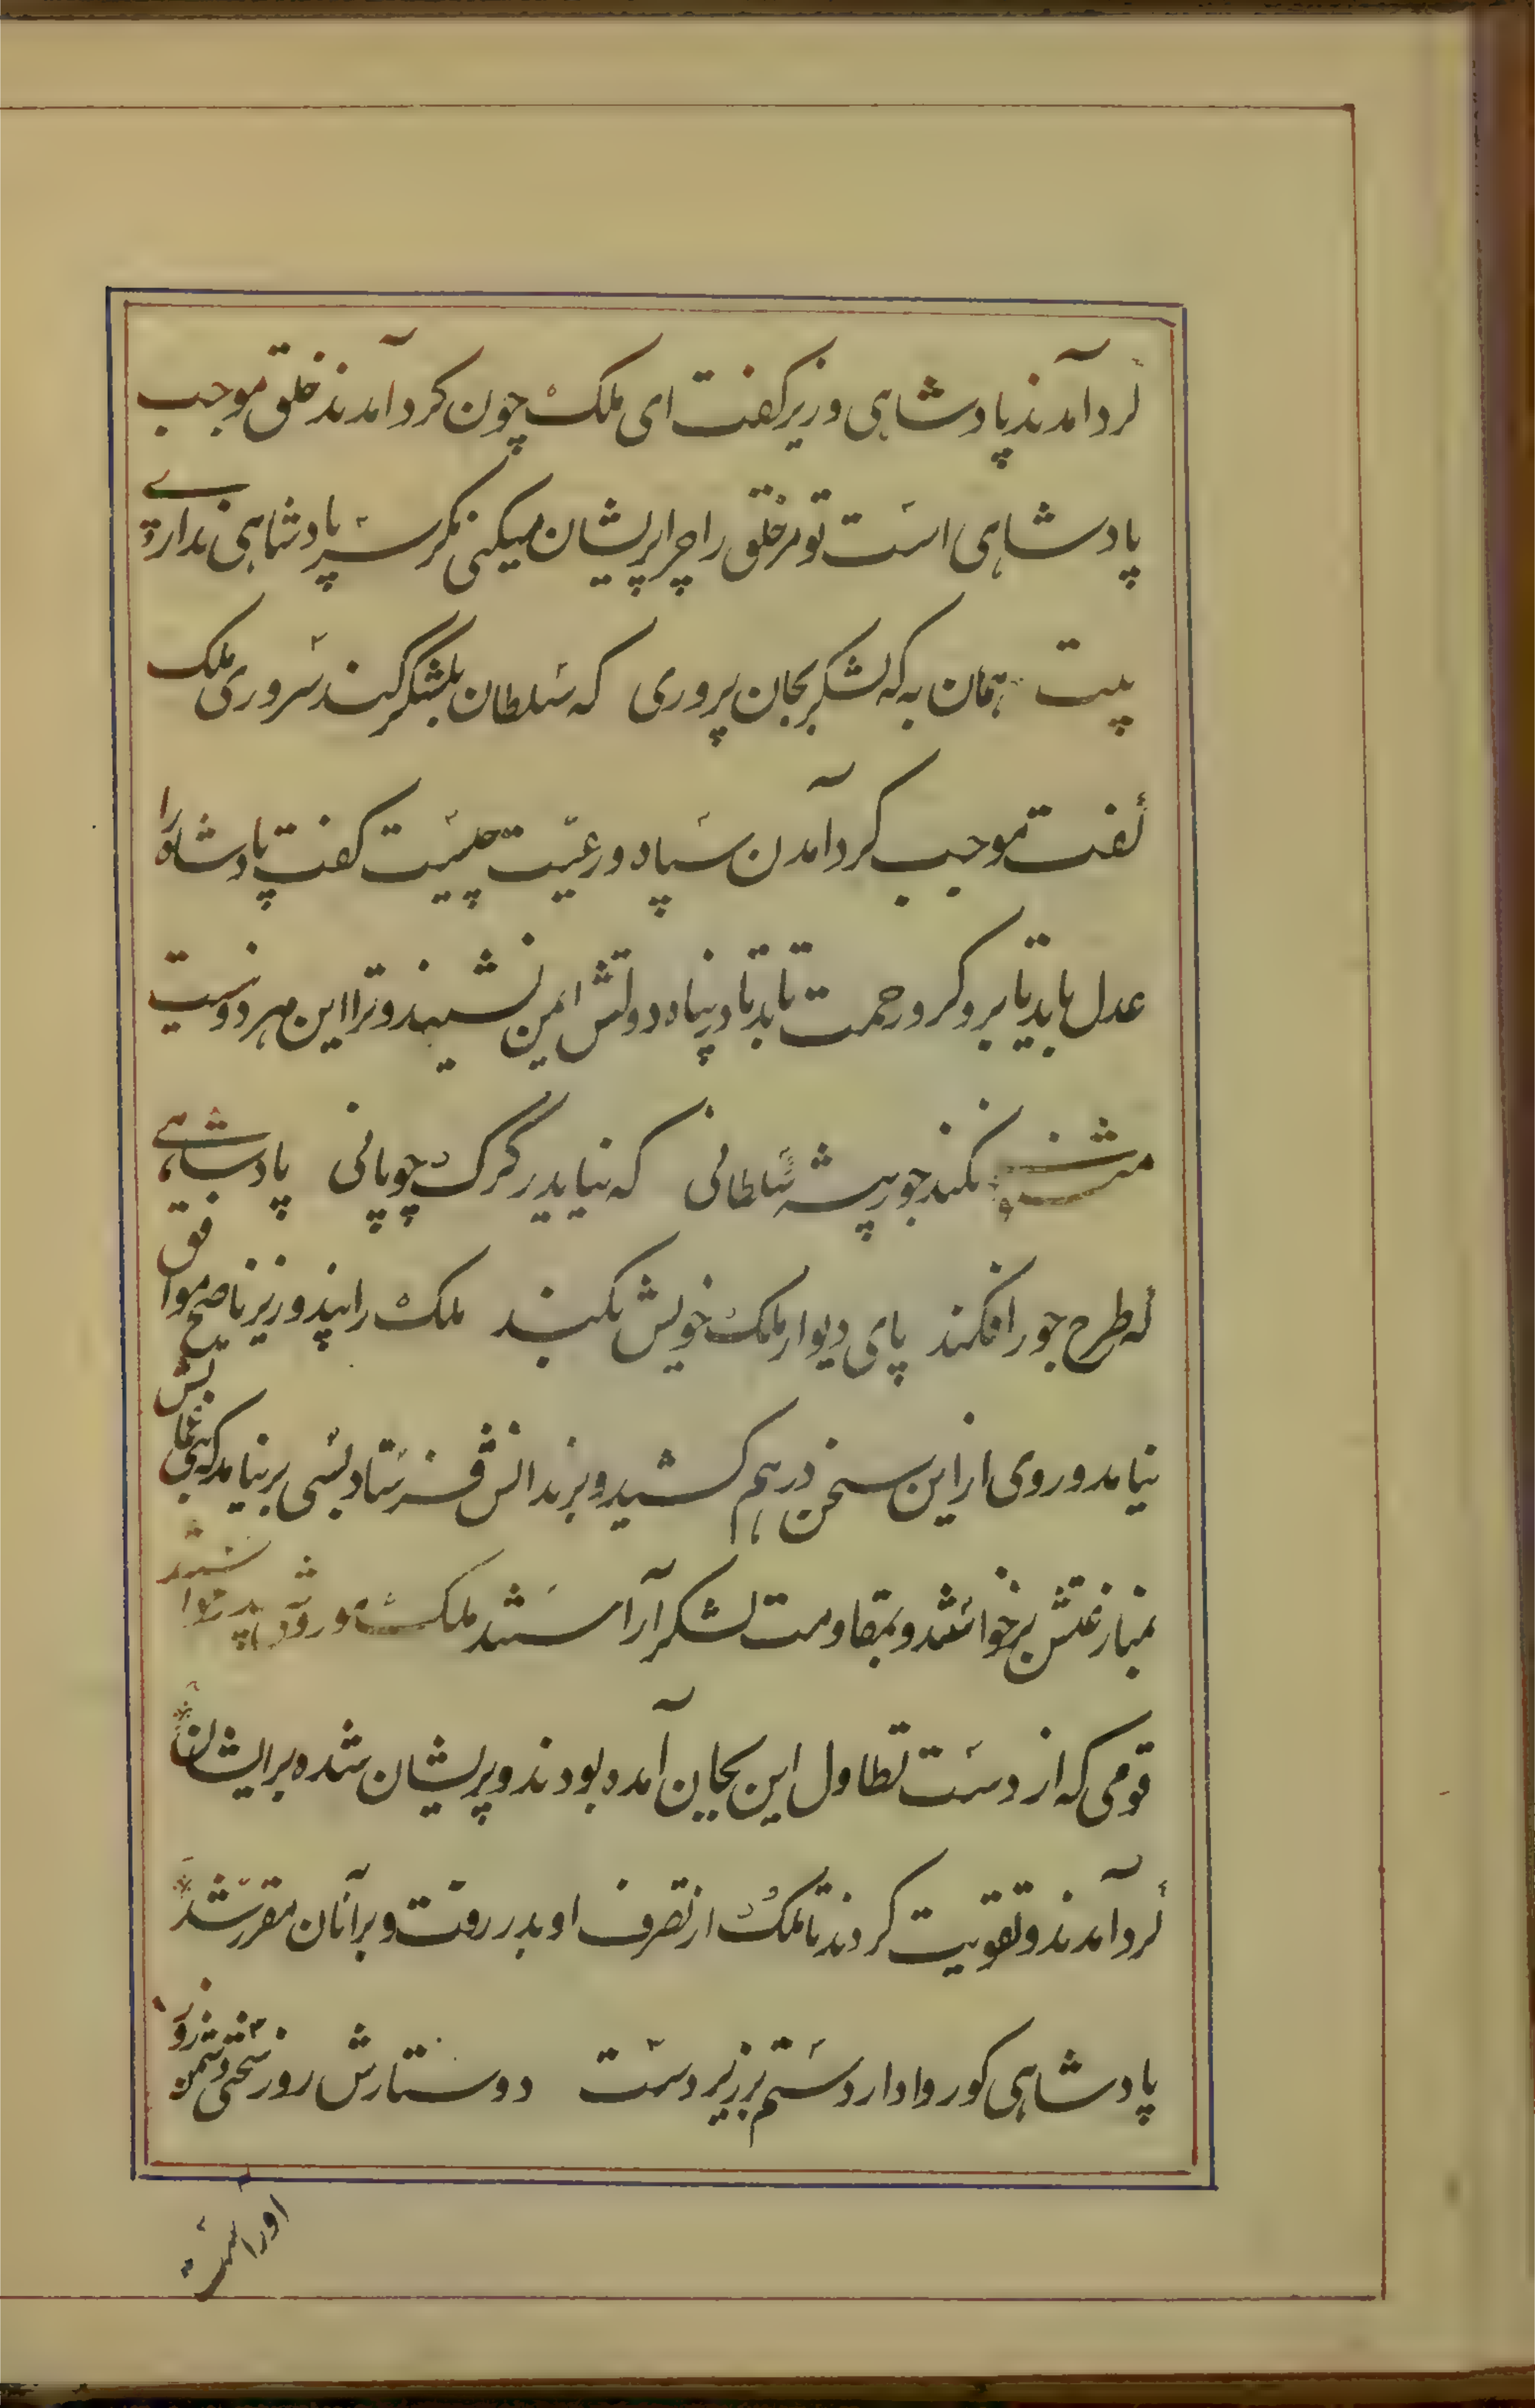 گرد آمدند پادشاهی وزیر کفت ای ملک چون کرد آمدند خلق موجب
پادشاهی است تو مر خلق را چرا پریشان میکنی مکر سر پادشاهی نداری
بیت همان به که لشکر بجان پروری که سلطان بلشگر کند سروری ملک
گفت موجب کرد آمدن سپاه و رعیت چیست کفت پادشاه را
عدل باید تا برو کرد و رحمت تا در پناه دولتش ایمن نشینند و ترا این هر دو نیست
مثنوی نکند جور پیشه سلطانی که نیاید ز گرگ چوپانی پادشاهی
که طرح جور افکند پای دیوار ملک خویش بکند ملک را پند وزیر ناصح موافق
نیامد و روی از این سخن در هم کشید و بزندانش فرستاد بسی بر نیامد که بنی
بمنازعتش برخواستند و بمقاومت لشکر آراستند ملک موروث پدر خواستند
قومی که از دست تطاول این بجان آمده بودند و پریشان شده بر ایشان
گرد آمدند و تقویت کردند تا ملک از تصرف او بدر رفت و بر آنان مقرر شد
پادشاهی کو روا دارد ستم بر زیر دست دوستارش روز سختی دشمن زور
اور است